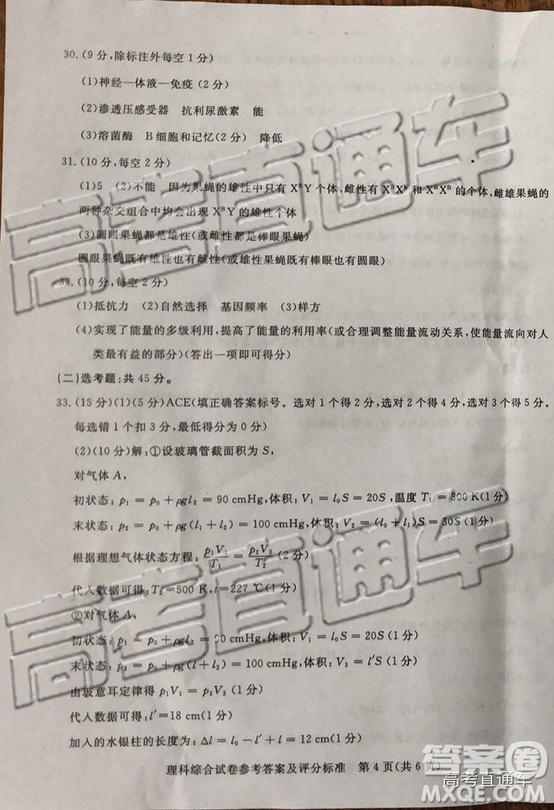 30.(9分,除标注外每空1分)
(1)神经—体液—免疫(2分)
(2)渗透压感受器 抗利尿激素 能
(3)溶菌酶 B细胞和记忆(2分) 降低
31.(10分,每空2分)
(1)5 (2)不能 因为果蝇的雄性中只有XᴮY个体,雌性有XᴮXᵇ和XᴮXᴮ的个体,雌雄果蝇的
两种杂交组合中均会出现XᴮY的雄性个体
(3)圆眼果蝇都是雄性(或雌性都是棒眼果蝇)
圆眼果蝇既有雄性也有雌性(或雌性果蝇既有棒眼也有圆眼)
(10分,每空2分)
(1)抵抗力 (2)自然选择 基因频率 (3)样方
(4)实现了能量的多级利用,提高了能量的利用率(或合理调整能量流动关系,使能量流向对人
类最有益的部分)(答出一项即可得分)
(二)选考题:共45分。
33.(15分)(1)(5分)ACE(填正确答案标号。选对1个得2分,选对2个得4分,选对3个得5分。
每选错1个扣3分,最低得分为0分)
(2)(10分)解:①设玻璃管截面积为S,
对气体A,
初状态:p₁=p₀+ρgl₂=90 cmHg,体积:V₁=l₀S=20S,温度T₁=300 K(1分)
末状态:p₂=p₀+ρg(l₁+l₂)=100 cmHg,体积:V₂=(l₀+l₁)S=30S(1分)
根据理想气体状态方程:p₁V₁/T₁=p₂V₂/T₂(2分)
代入数据可得:T₂=500 K,t=227 ℃(1分)
②对气体A,
初状态:p₁=p₀+ρgl₂=90 cmHg,体积:V₁=l₀S=20S(1分)
末状态:p₃=p₀+ρg(l+l₂)=100 cmHg,体积:V₃=l′S(1分)
由玻意耳定律得p₁V₁=p₃V₃(1分)
代入数据可得:l′=18 cm(1分)
加入的水银柱的长度为:Δl=l₀-l′+l=12 cm(1分)
理科综合试卷参考答案及评分标准 第4页(共6页)
高考直通车
高考直通车
高考直通车